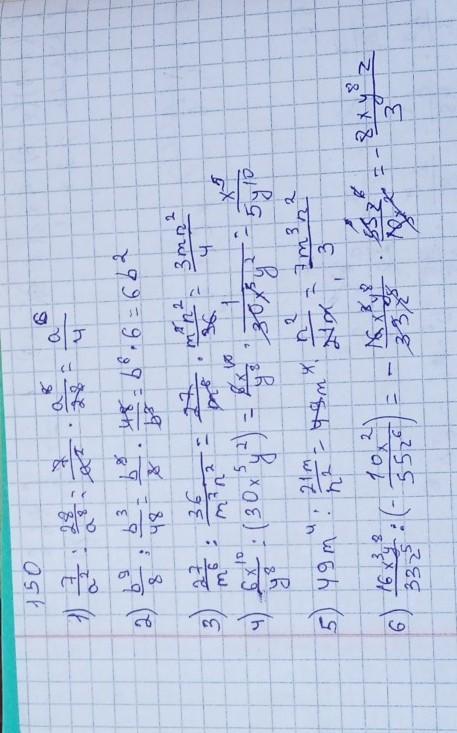 150
1) 7/a² : 28/a⁸ = 7/a² · a⁸/28 = a⁶/4
2) b⁹/8 : b³/48 = b⁹/8 · 48/b³ = b⁶ · 6 = 6b²
3) 27/m⁶ : 36/m⁷n² = 27/m⁶ · m⁷n²/36 = 3mn²/4
4) 6x¹⁰/y⁸ : (30x⁵y²) = 6x¹⁰/y⁸ · 1/30x⁵y² = x⁵/5y¹⁰
5) 49m⁴ : 21m/n² = 49m⁴ · n²/21m = 7m³n²/3
6) 16x³y⁸/33z⁵ : (-10x²/55z⁶) = -16x³y⁸/33z⁵ · 55z⁶/10x² = -8xy⁸z/3